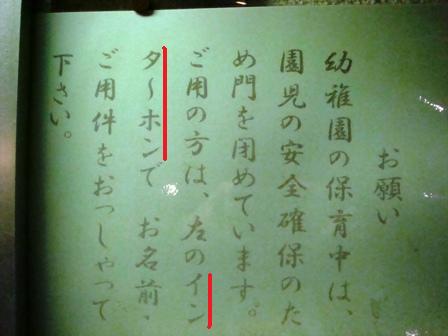 お願い
幼稚園の保育中は、
園児の安全確保のた
め門を閉めています。
ご用の方は、左のイン
タ〜ホンで お名前・
ご用件をおっしゃって
下さい。